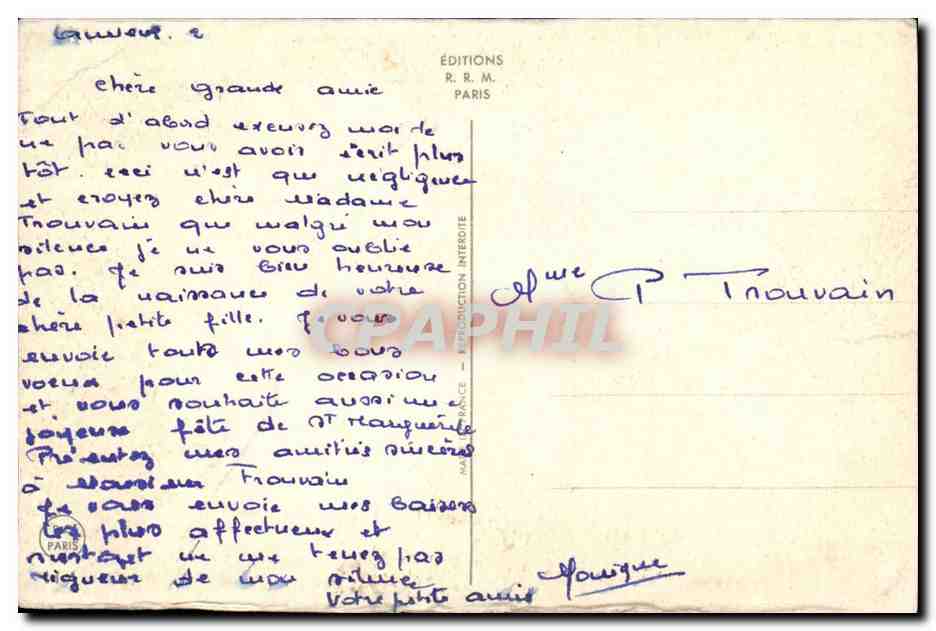 chère grande amie
Tout d'abord excusez moi de
ne pas vous avoir écrit plus
tôt. ceci n'est que négligence
et croyez chère Madame
Trouvain que malgré mon
silence je ne vous oublie
pas. Je suis bien heureuse
de la naissance de votre
chère petite fille. Je vous
envoie touts mes bons
voeux pour cette occasion
et vous souhaite aussi une
joyeuse fête de St Marguerite
Présentez mes amitiés sincères
à Monsieur Trouvain
Je vous envoie mes baisers
les plus affectueux et
surtout ne me tenez pas
rigueur de mon silence
Votre petite amie
Monique
ÉDITIONS
R. R. M.
PARIS
MADE IN FRANCE — REPRODUCTION INTERDITE
Mme P Trouvain
PARIS
CPAPHIL